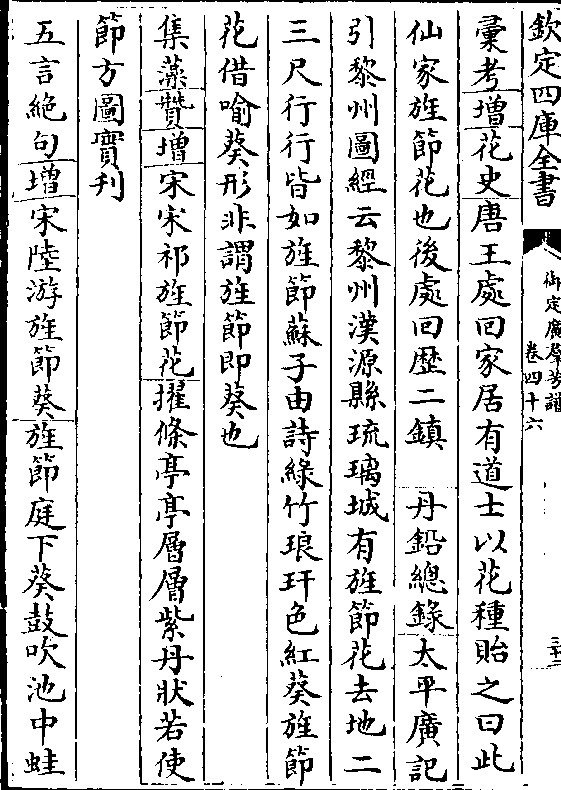 欽定四庫全書
御定廣羣芳譜
卷四十六
彙考增花史唐王處回家居有道士以花種貽之曰此
仙家旌節花也後處回歴二鎮　丹鉛總錄太平廣記
引黎州圖經云黎州漢源縣琉璃城有旌節花去地二
三尺行行皆如旌節蘇子由詩綠竹琅玕色紅葵旌節
花借喻葵形非謂旌節即葵也
集藻贊增宋宋祁旌節花擢條亭亭層層紫丹狀若使
節方圖寳刋
五言絶句增宋陸游旌節葵旌節庭下葵鼓吹池中蛙